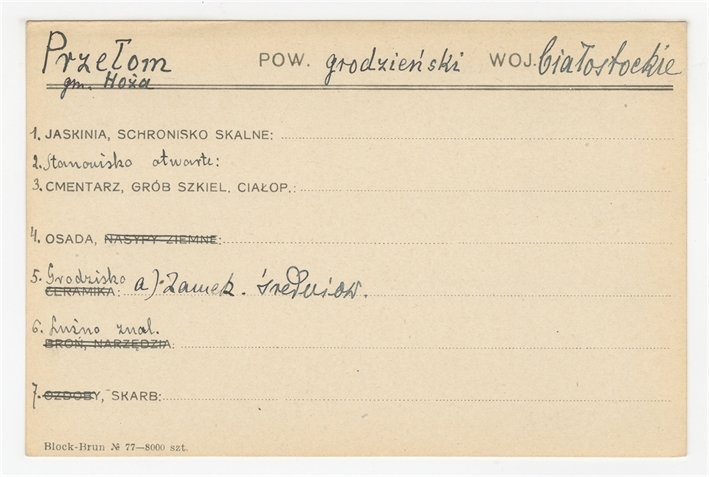 Przełom POW. grodzieński WOJ. białostockie
gm. Hoża
1. JASKINIA, SCHRONISKO SKALNE:
2. Stanowisko otwarte:
3. CMENTARZ, GRÓB SZKIEL. CIAŁOP.:
4. OSADA, NASYPY ZIEMNE:
5. Grodzisko a) Zamek. średniow.
CERAMIKA:
6. Luźno znal.
BROŃ, NARZĘDZIA:
7. OZDOBY, SKARB:
Block-Brun № 77—8000 szt.